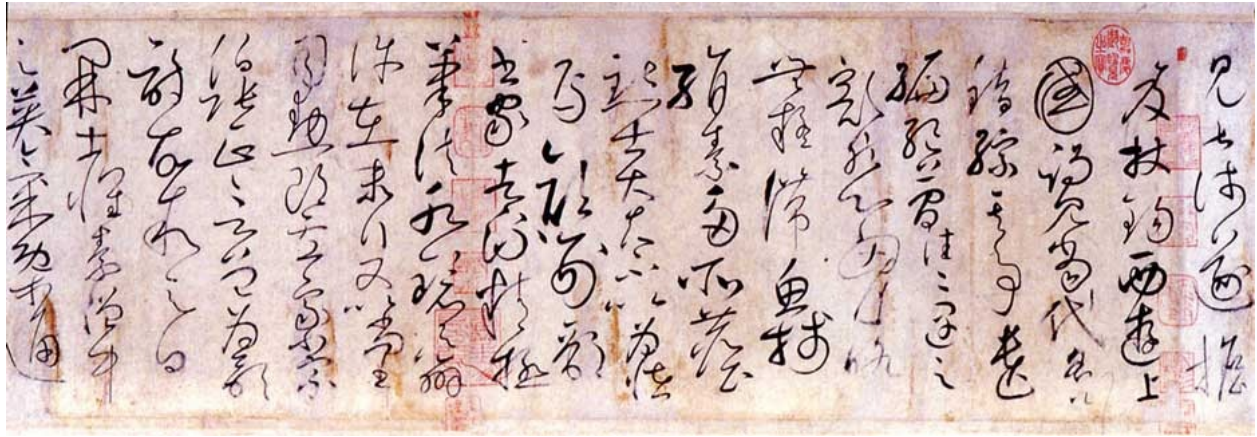 見甚淺遂擔
笈杖錫西遊上
國謁見當代名公
錯綜其事遺
編絕簡往々遇之
豁然心胸略
無疑滯魚牋
絹素多所塵
點士大夫不以為怪
焉顏刑部
書家者流精極
筆法水鏡之辯
許在末行又以尚書
司勳郎盧象小宗
伯張正言曾為歌
詩故敘之曰
開士懷素僧中
之英氣概通